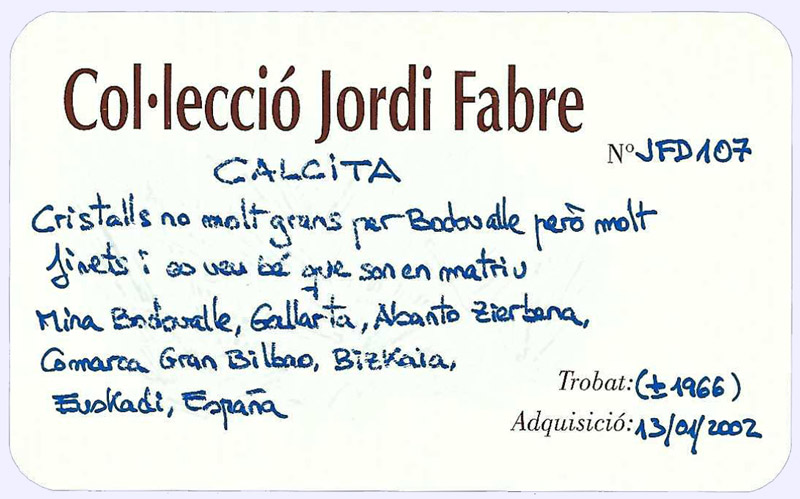 Col·lecció Jordi Fabre
Nº JFD107
CALCITA
Cristalls no molt grans per Bodovalle però molt
finets i es veu bé que son en matriu
Mina Bodovalle, Gallarta, Abanto Zierbena,
Comarca Gran Bilbao, Bizkaia,
Euskadi, España
Trobat: (±1966)
Adquisició: 13/01/2002